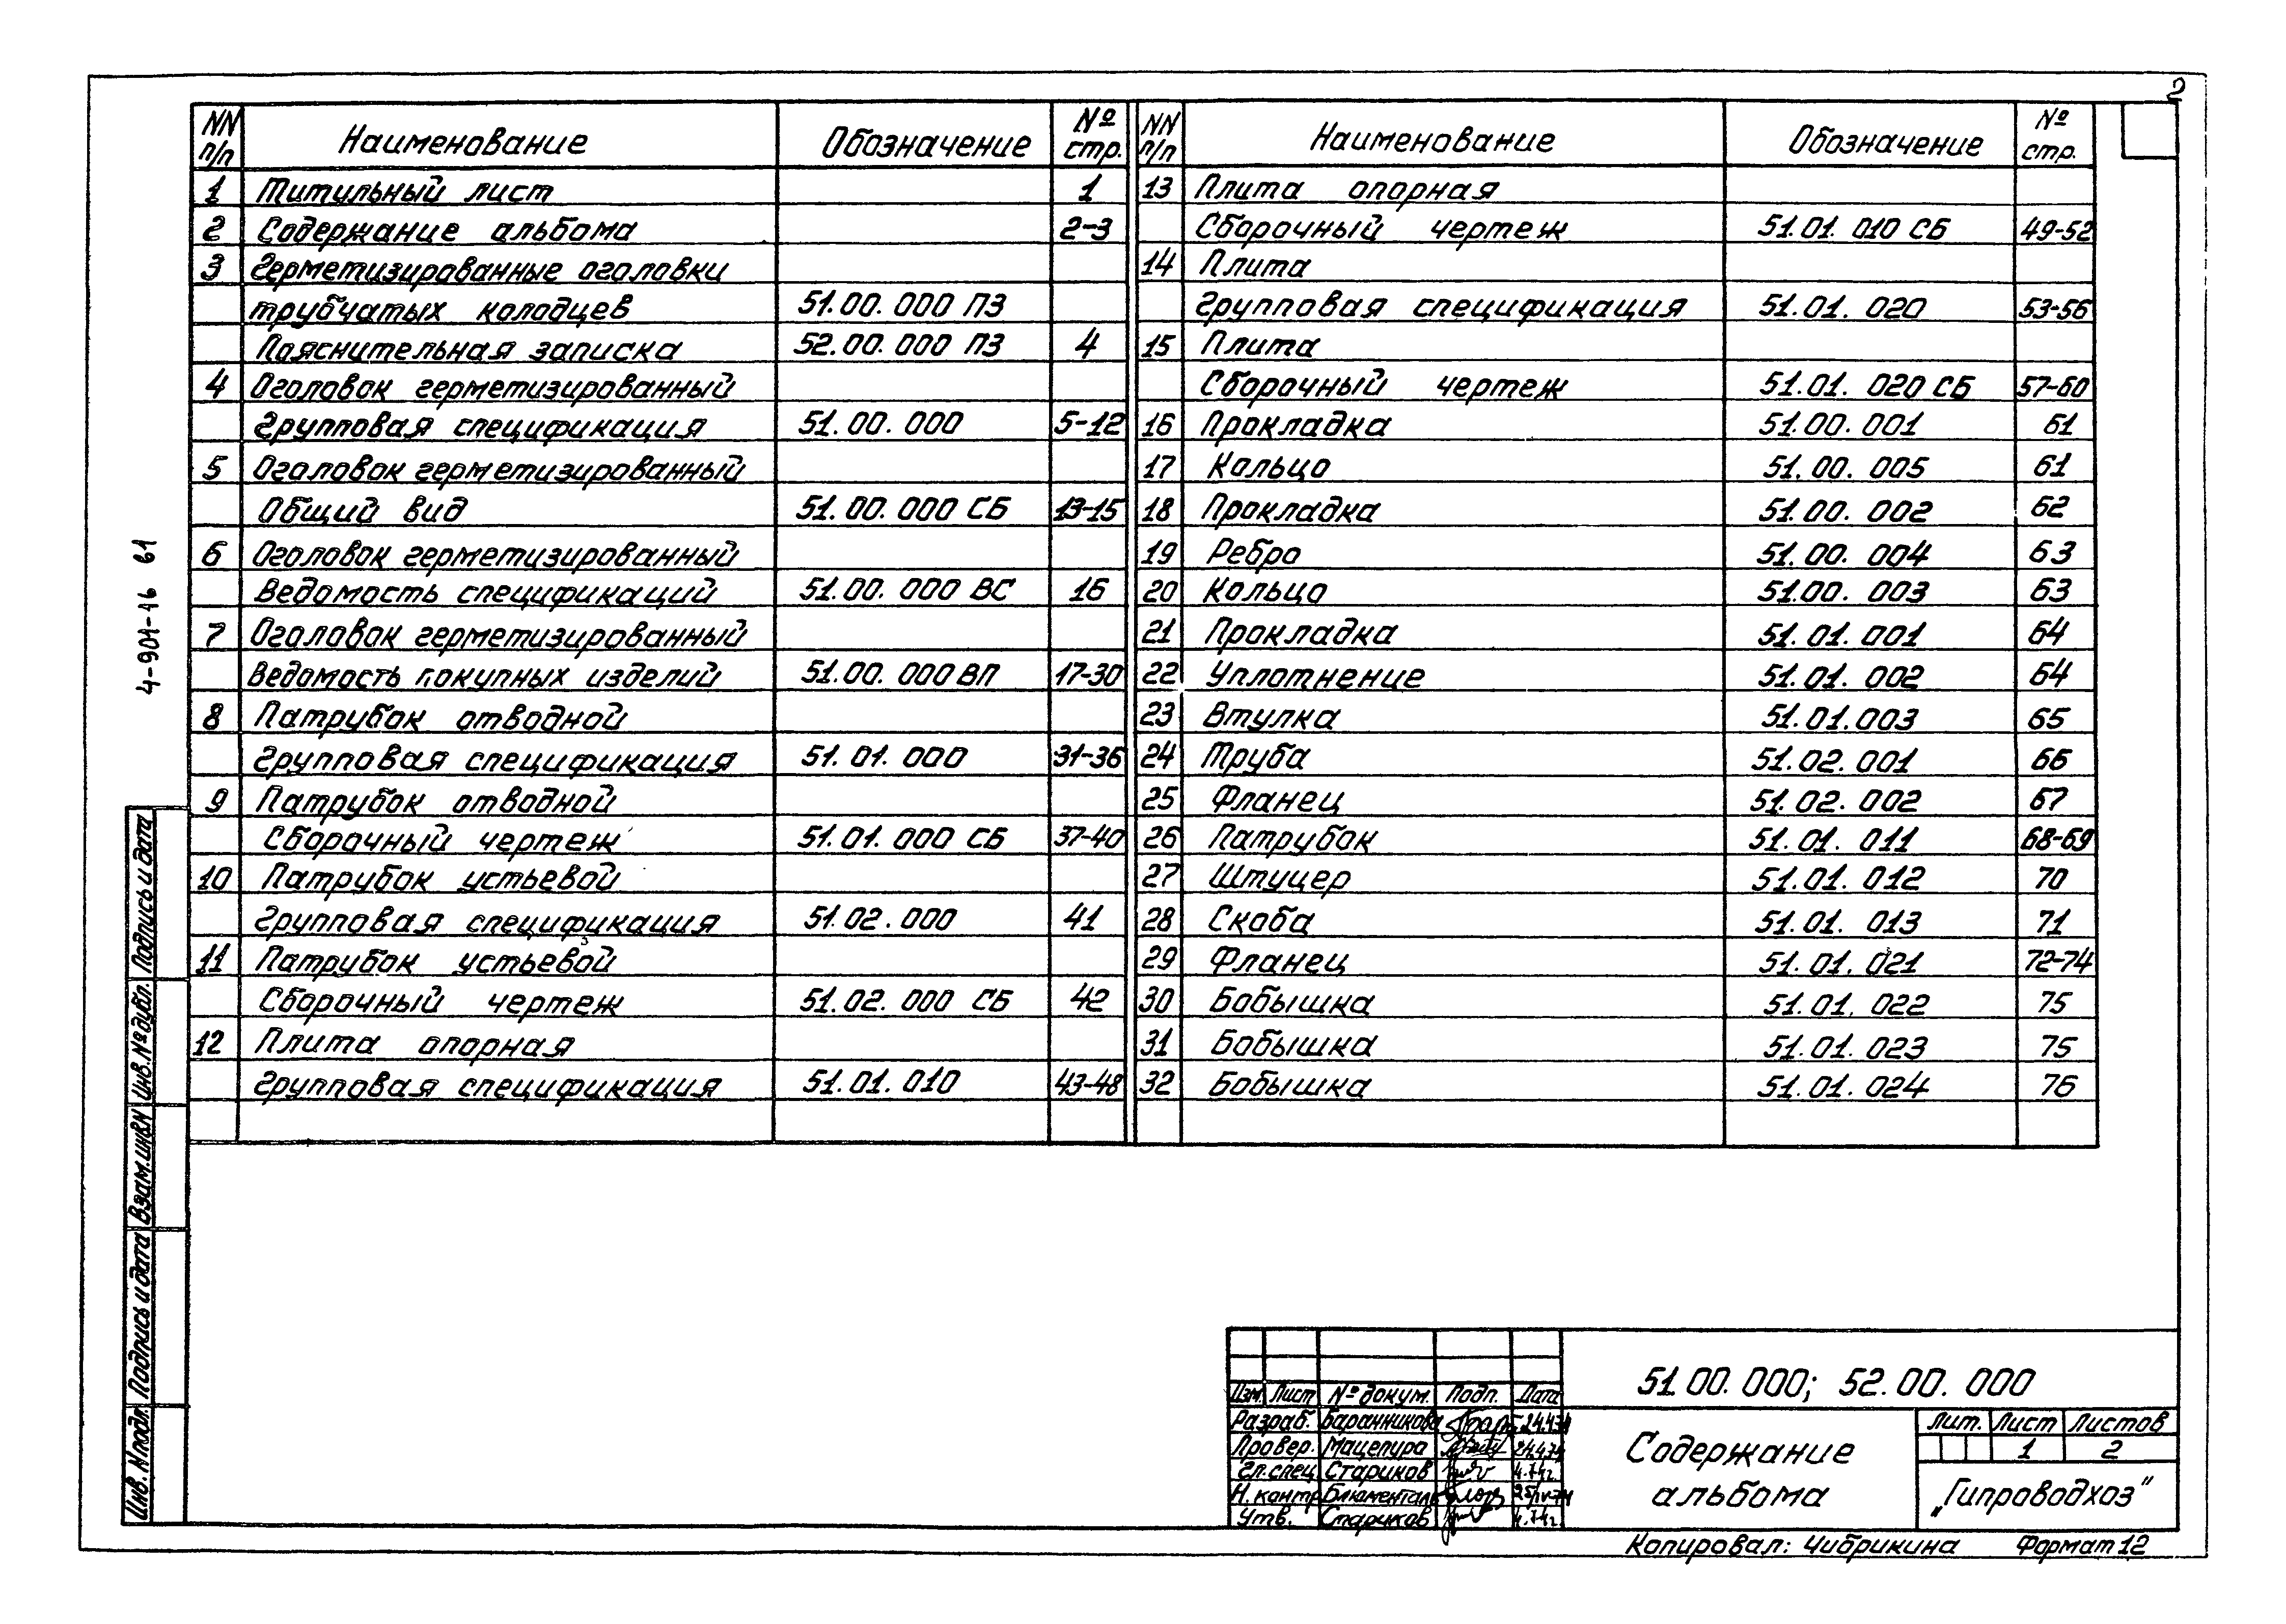 2
NN п/п Наименование Обозначение № стр.
1 Титульный лист 1
2 Содержание альбома 2-3
3 Герметизированные оголовки
трубчатых колодцев 51.00.000 ПЗ
Пояснительная записка 52.00.000 ПЗ 4
4 Оголовок герметизированный
Групповая спецификация 51.00.000 5-12
5 Оголовок герметизированный
Общий вид 51.00.000 СБ 13-15
6 Оголовок герметизированный
Ведомость спецификаций 51.00.000 ВС 16
7 Оголовок герметизированный
Ведомость покупных изделий 51.00.000 ВП 17-30
8 Патрубок отводной
Групповая спецификация 51.01.000 31-36
9 Патрубок отводной
Сборочный чертеж 51.01.000 СБ 37-40
10 Патрубок устьевой
Групповая спецификация 51.02.000 41
11 Патрубок устьевой
Сборочный чертеж 51.02.000 СБ 42
12 Плита опорная
Групповая спецификация 51.01.010 43-48
NN п/п Наименование Обозначение № стр.
13 Плита опорная
Сборочный чертеж 51.01.010 СБ 49-52
14 Плита
Групповая спецификация 51.01.020 53-56
15 Плита
Сборочный чертеж 51.01.020 СБ 57-60
16 Прокладка 51.00.001 61
17 Кольцо 51.00.005 61
18 Прокладка 51.00.002 62
19 Ребро 51.00.004 63
20 Кольцо 51.00.003 63
21 Прокладка 51.01.001 64
22 Уплотнение 51.01.002 64
23 Втулка 51.01.003 65
24 Труба 51.02.001 66
25 Фланец 51.02.002 67
26 Патрубок 51.01.011 68-69
27 Штуцер 51.01.012 70
28 Скоба 51.01.013 71
29 Фланец 51.01.021 72-74
30 Бобышка 51.01.022 75
31 Бобышка 51.01.023 75
32 Бобышка 51.01.024 76
4-901-16 61
Подпись и дата
Инв.№ дубл.
Взам.инв.N
Подпись и дата
Инв.Nподл.
51.00.000; 52.00.000
Изм. Лист № докум. Подп. Дата
Разраб. Баранникова 24.4.74
Провер. Мацепура 24.4.74
Гл.спец. Стариков 4.74г.
Н.контр. Блюменталь 25/IV-74
Утв. Стариков 4.74г.
Содержание
альбома
Лит. Лист Листов
1 2
„Гипроводхоз"
Копировал: Чибрикина Формат 12